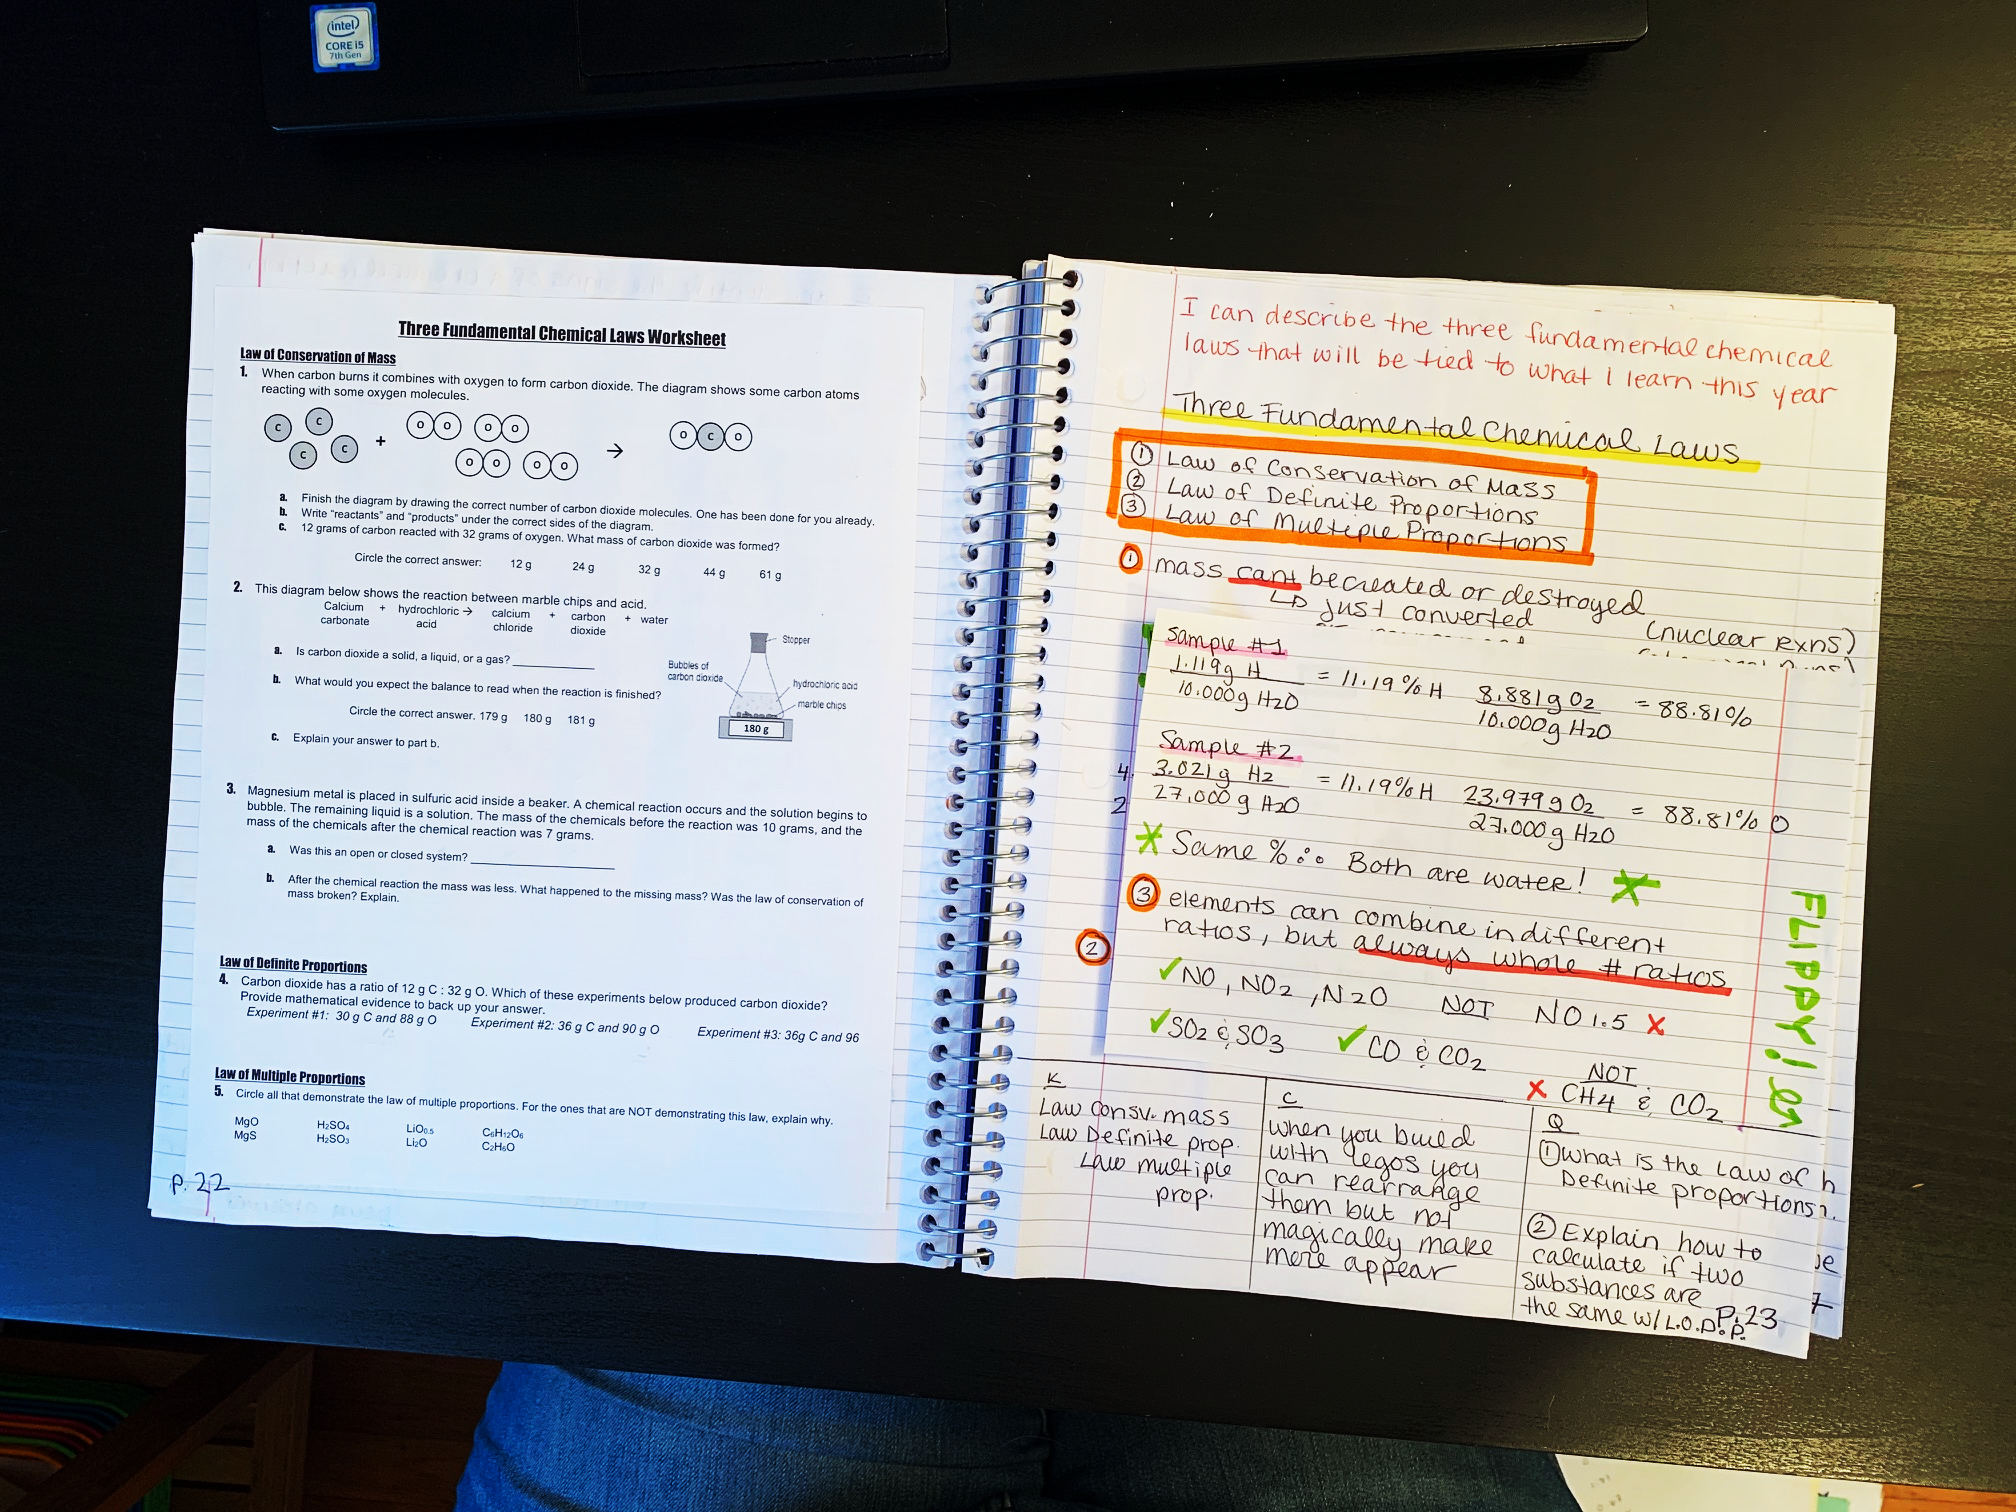 intel
CORE i5
7th Gen
Three Fundamental Chemical Laws Worksheet
Law of Conservation of Mass
1. When carbon burns it combines with oxygen to form carbon dioxide. The diagram shows some carbon atoms
reacting with some oxygen molecules.
C C C C + O O O O O O O O → O C O
a. Finish the diagram by drawing the correct number of carbon dioxide molecules. One has been done for you already.
b. Write "reactants" and "products" under the correct sides of the diagram.
c. 12 grams of carbon reacted with 32 grams of oxygen. What mass of carbon dioxide was formed?
Circle the correct answer: 12 g 24 g 32 g 44 g 61 g
2. This diagram below shows the reaction between marble chips and acid.
Calcium + hydrochloric → calcium + carbon + water
carbonate acid chloride dioxide
Stopper
Bubbles of
carbon dioxide
hydrochloric acid
marble chips
180 g
a. Is carbon dioxide a solid, a liquid, or a gas?
b. What would you expect the balance to read when the reaction is finished?
Circle the correct answer. 179 g 180 g 181 g
c. Explain your answer to part b.
3. Magnesium metal is placed in sulfuric acid inside a beaker. A chemical reaction occurs and the solution begins to
bubble. The remaining liquid is a solution. The mass of the chemicals before the reaction was 10 grams, and the
mass of the chemicals after the chemical reaction was 7 grams.
a. Was this an open or closed system?
b. After the chemical reaction the mass was less. What happened to the missing mass? Was the law of conservation of
mass broken? Explain.
Law of Definite Proportions
4. Carbon dioxide has a ratio of 12 g C : 32 g O. Which of these experiments below produced carbon dioxide?
Provide mathematical evidence to back up your answer.
Experiment #1: 30 g C and 88 g O Experiment #2: 36 g C and 90 g O Experiment #3: 36g C and 96
Law of Multiple Proportions
5. Circle all that demonstrate the law of multiple proportions. For the ones that are NOT demonstrating this law, explain why.
MgO H₂SO₄ LiO₀.₅ C₆H₁₂O₆
MgS H₂SO₃ Li₂O C₂H₆O
P. 22
I can describe the three fundamental chemical
laws that will be tied to what I learn this year
Three Fundamental Chemical Laws
① Law of Conservation of Mass
② Law of Definite Proportions
③ Law of Multiple Proportions
① mass cant be created or destroyed
↳ just converted (nuclear rxns)
Sample #1
1.119g H = 11.19% H 8.881g O2 = 88.81%
10.000g H2O 10.000g H2O
Sample #2
4.
3.021g H2 = 11.19% H 23.979g O2 = 88.81% O
2
27.000g H2O 27.000g H2O
* Same % ∴ Both are water! *
③ elements can combine in different
ratios, but always whole # ratios
②
✓NO, NO2, N2O NOT NO1.5 X
✓SO2 & SO3 ✓CO & CO2
NOT
X CH4 & CO2
FLIPPY!
K
Law consv. mass
Law Definite prop.
Law multiple
prop.
C
when you build
with legos you
can rearrange
them but not
magically make
more appear
Q
① what is the Law of
Definite proportions?
② Explain how to
calculate if two
substances are
the same w/ L.O.D.P.
P.23
h
7